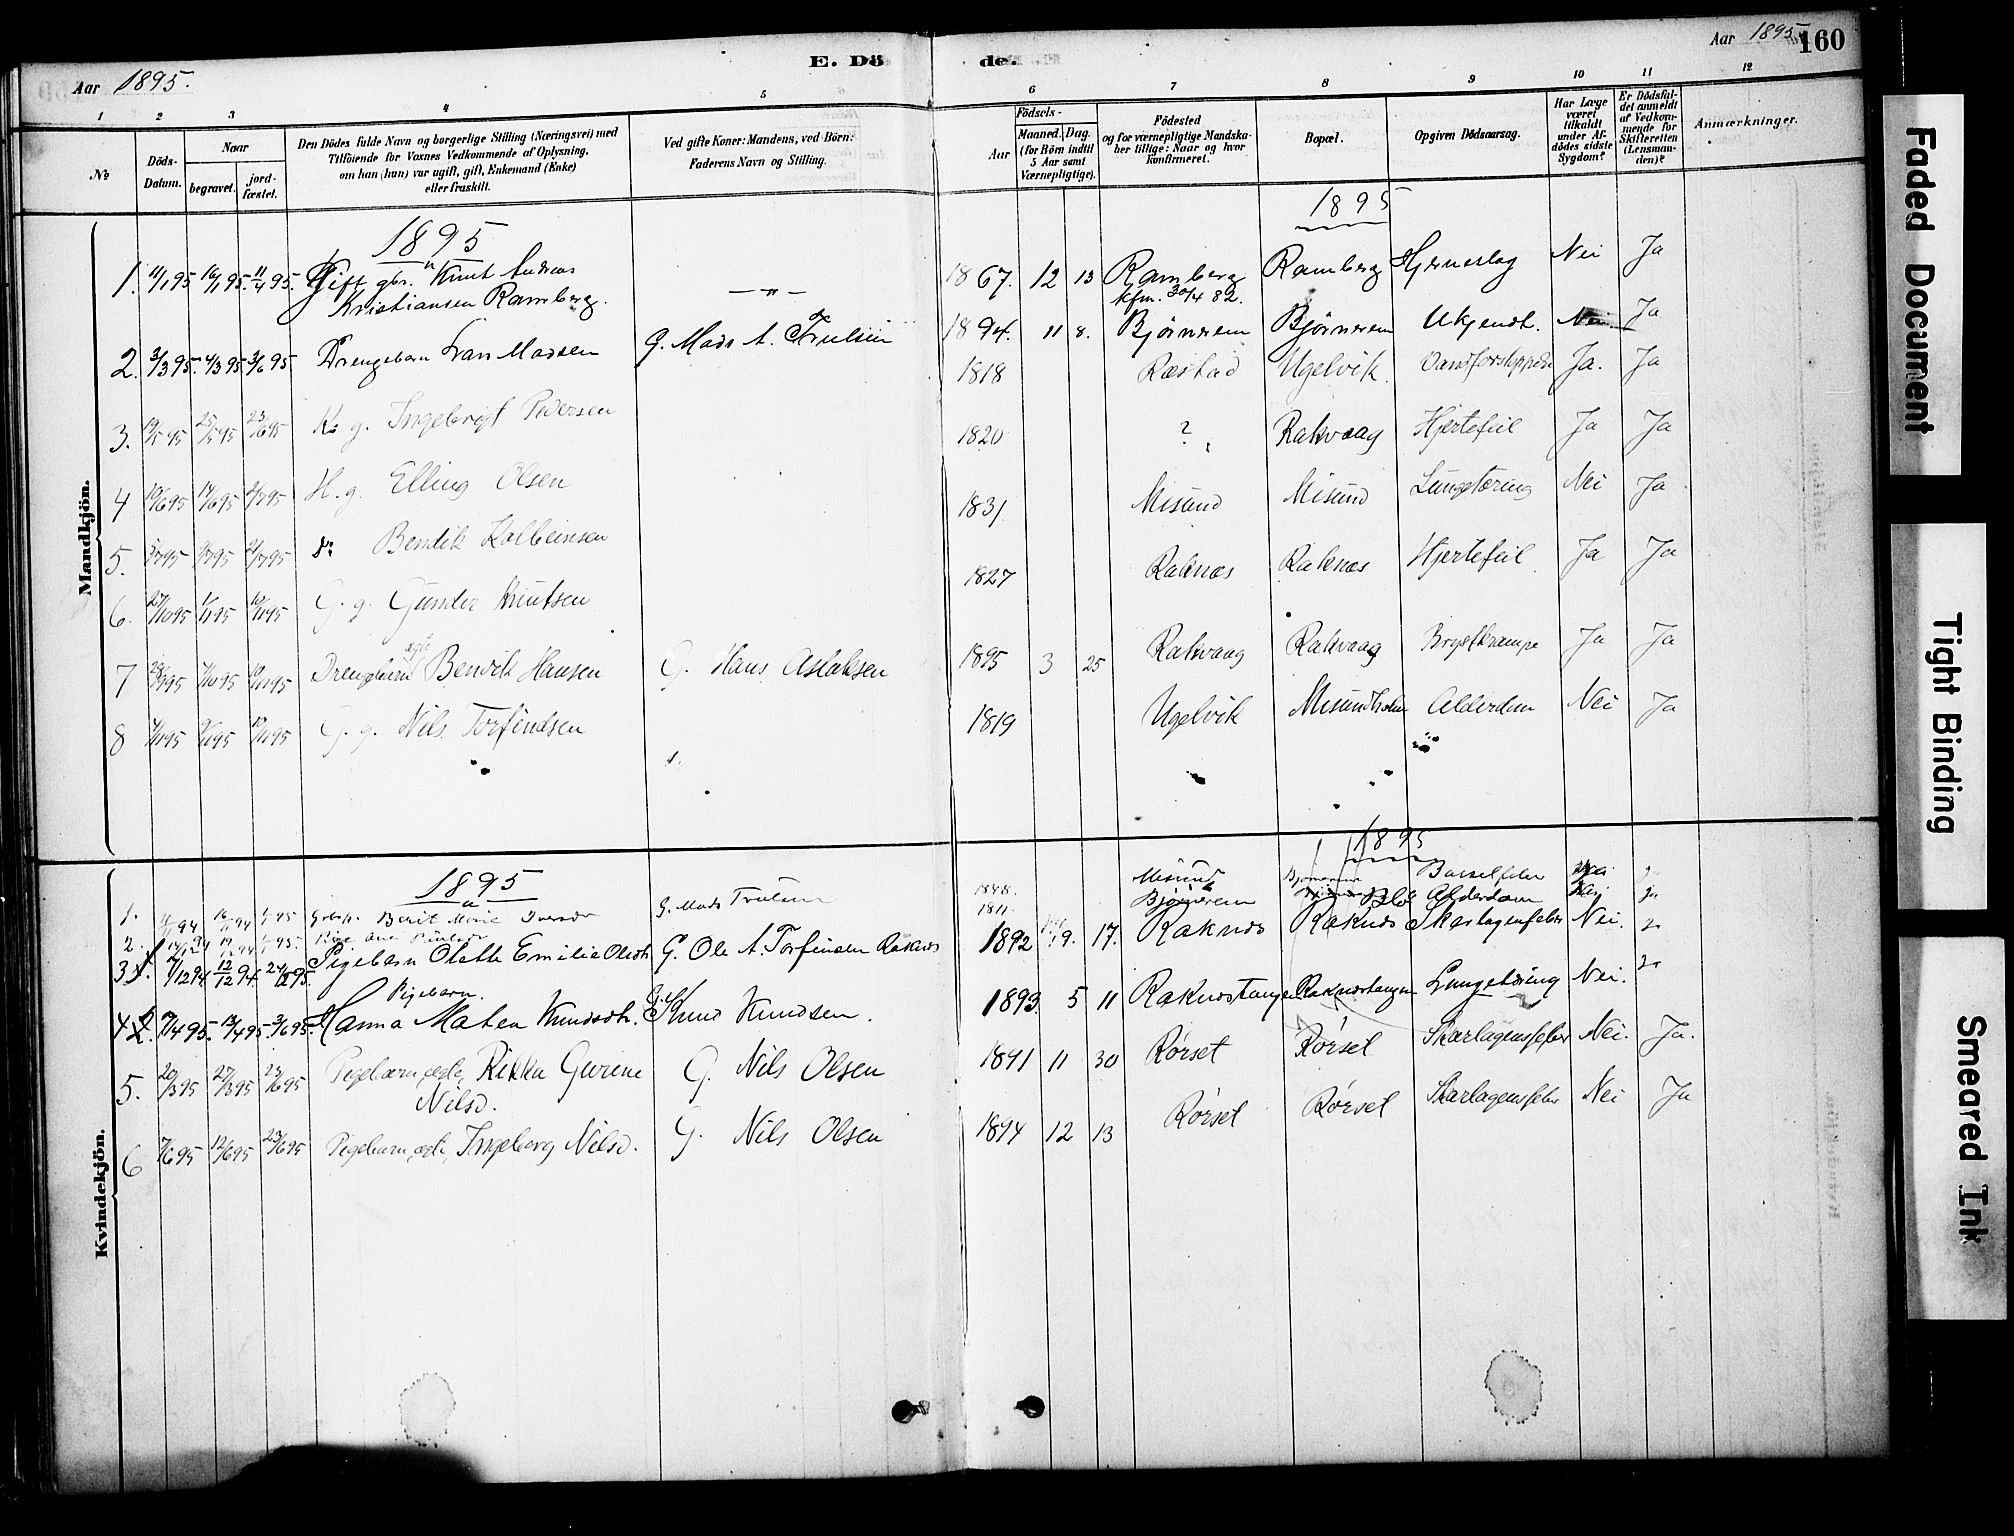 Aar 1895.
E. Dö
de.
Aar 1895
160
1 2 3 4 5 6 7 8 9 10 11 12
№
Döds-Datum.
Naar
begravet.
jord-fæstet.
Den Dödes fulde Navn og borgerlige Stilling (Næringsvei) med
Tilföiende for Voxnes Vedkommende af Oplysning,
om han (hun) var ugift, gift, Enkemand (Enke)
eller fraskilt.
Ved gifte Koner: Mandens, ved Börn:
Faderens Navn og Stilling.
Födsels-
Aar
Maaned. Dag.
(for Börn indtil
5 Aar samt
Værnepligtige).
Födested
og for værnepligtige Mandska-
ber tillige: Naar og hvor
konfirmeret.
Bopæl.
Opgiven Dödsaarsag.
Har Læge
været
tilkaldt
under Af-
dödes sidste
Sygdom?
Er Dödsfal-
det anmeldt
af Vedkom-
mende for
Skifteretten
(Lensman-
den)?
Anmærkninger.
Mandkjön.
1895
1895
1. 11/1 95 16/1 95. 11/4 95. Gift gbr. Knut Andreas
Kristiansen Ramberg. —"— 1867. 12 13 Ramberg Ramberg Hjerneslag Nei Ja
kfm. 30/4 82.
2. 3/3 95. 4/3 95 3/6 95 Drengebarn Ivan Madsen G. Mads A. Trulsen 1894. 11 8. Bjørnerem Bjørnerem Ukjendt. Nei Ja
3. 19/5 95 25/5 95 23/6 95 K. g. Ingebrigt Pedersen 1818 Ræstad Ugelvik. Vandforstoppelse Ja. Ja
4 10/6 95 14/6 95 2/7 95 H. g. Elling Olsen 1820 ? Rakvaag Hjertefeil Ja Ja
5. 3/7 95 9/7 95 21/7 95 Bendik Kolbeinsen 1831 Misund Misund Lungetæring Nei Ja
6. 27/10 95 1/11 95 10/11 95 G. g. Gunder Knutsen 1827 Raknæs Raknæs Hjertefeil Ja Ja
7 28/9 95 7/10 95 10/11 95 Drengebarn ægte Bendik Hansen G. Hans Aslaksen 1895 3 25 Rakvaag Rakvaag Brystkrampe Ja Ja
8 4/11 95 9/11 95 10/11 95 G. g. Nils Torfindsen 1819 Ugelvik Misundholm Alderdom Nei Ja
Kvindekjön.
1895
1895
1. 11/11 94 16/11 94 95 Berit Marie Iversdr G. Mads Trulsen 1848. Misund Bjørnerem Barselfeber Nei
2. 1811. Bjørnerem Alderdom Nei
3. 7/12 94 12/12 94 95. Pigebarn Olette Emilie Olesdt G. Ole A. Torfinsen Raknæs 1892 9. 17. Raknæs Raknæs Skarlagensfeber Nei.
Pigebarn.
4 7/4 95. 13/4 95. 3/6 95. Hanna Maten Knudsdt. G. Knud Knudsen. 1893. 5 11 Raknæstangen Raknæstangen Lungetæring Nei.
5. 20/3 95 27/3 95 23/6 95 Pigebarn, ægte, Rikka Gurine G. Nils Olsen 1891 11 30 Rørset Rørset Skarlagensfeber Nei. Ja.
Nilsd.
6 7/6 95 12/6 95 23/6 95 Pigebarn, ægte, Ingeborg Nilsd. G. Nils Olsen 1894 12 13 Rørset Rørset Skarlagensfeber Nei Ja
Faded Document
Tight Binding
Smeared Ink